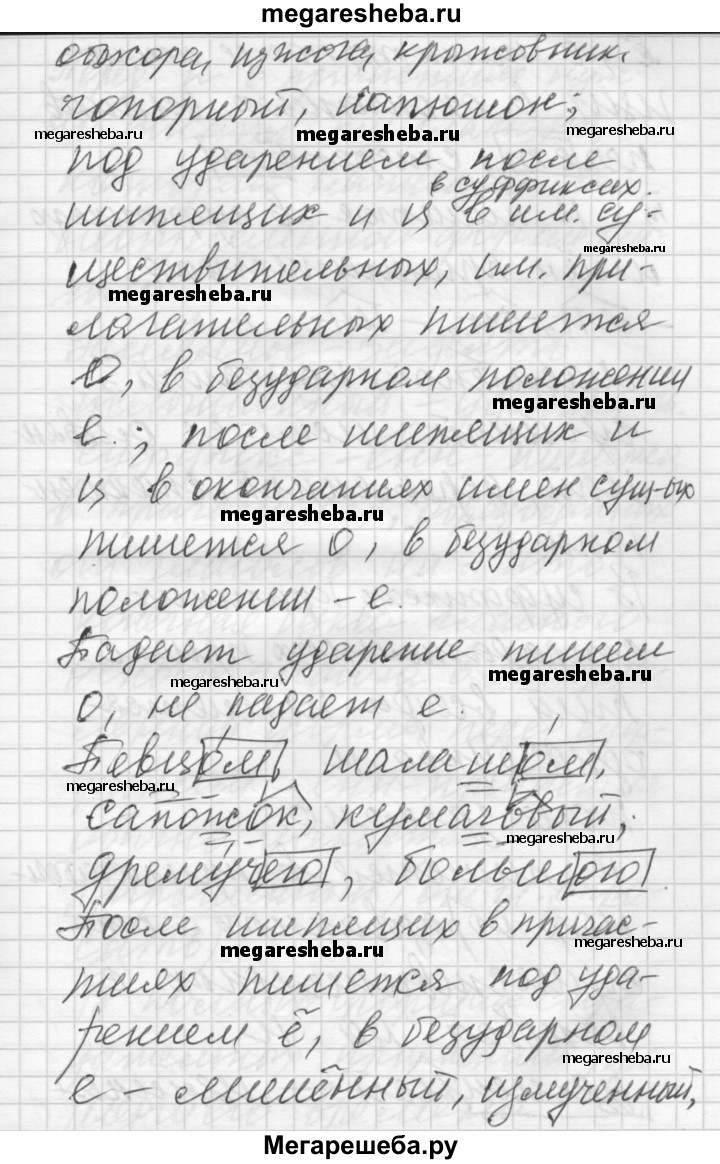 megaresheba.ru
обжора, изжога, крыжовник,
чопорный, капюшон;
megaresheba.ru
megaresheba.ru
megaresheba.ru
под ударением после
в суффиксах.
шипящих и ц в им. су-
megaresheba.ru
ществительных, им. при-
megaresheba.ru
лагательных пишется
О, в безударном положении
megaresheba.ru
е.; после шипящих и
ц в окончаниях имен сущ-ых
megaresheba.ru
пишется о, в безударном
положении – е.
Падает ударение пишем
megaresheba.ru
megaresheba.ru
о, не падает е.
Певцом, шалашом,
megaresheba.ru
сапожок, кумачовый,
megaresheba.ru
дремучего, большого
После шипящих в причас-
megaresheba.ru
megaresheba.ru
тиях пишется под уда-
рением ё, в безударном
megaresheba.ru
е – лишённый, измученный,
megaresheba.ru
Мегарешеба.ру